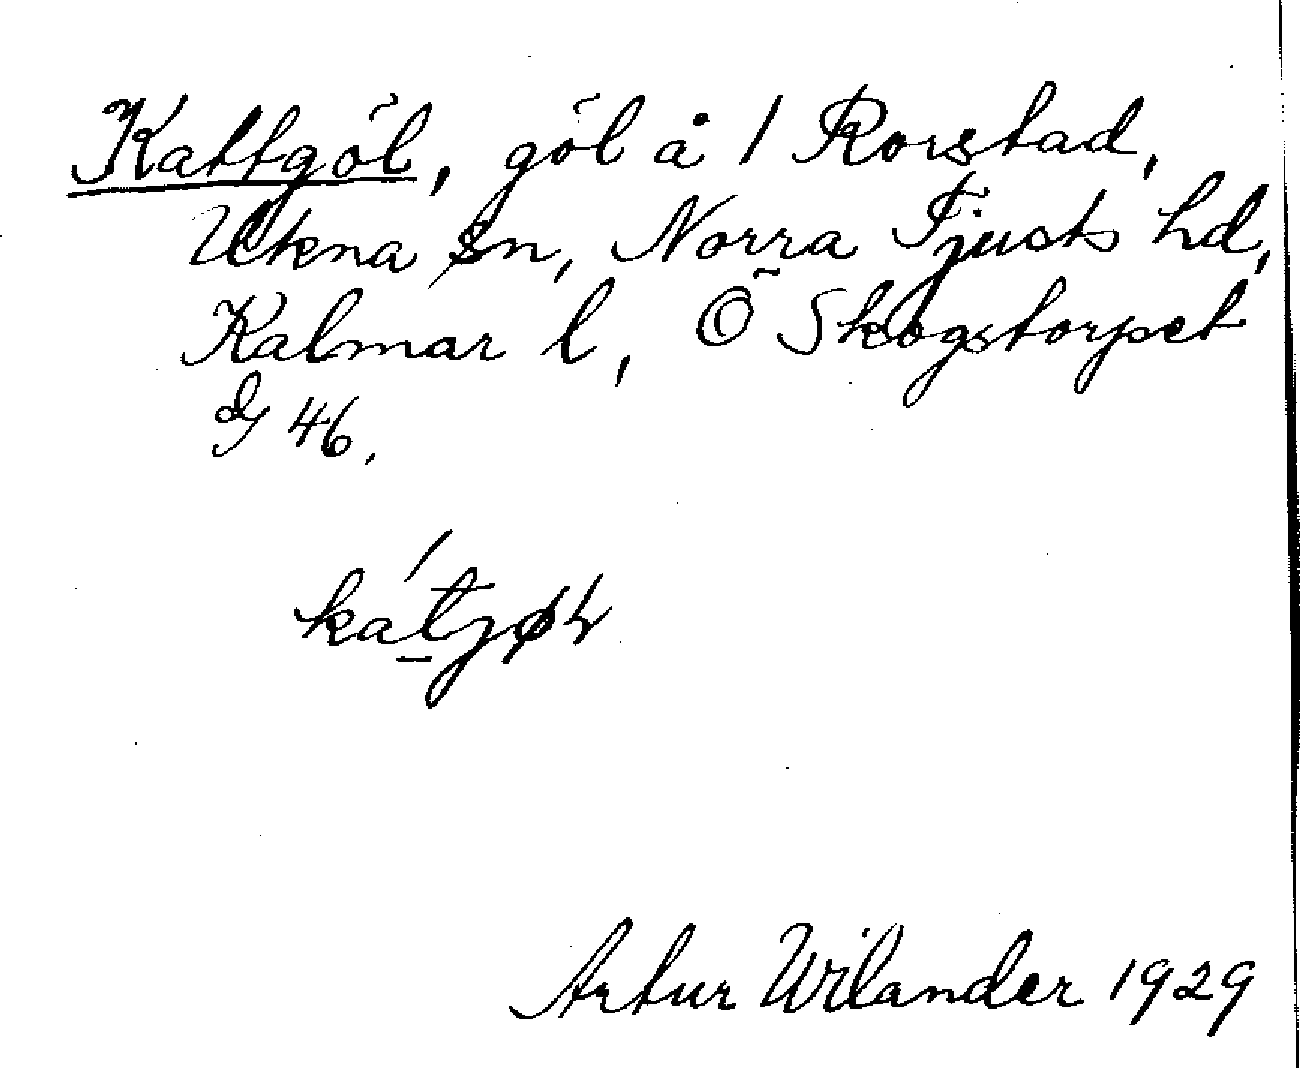 Kattgöl, göl å 1 Rorstad,
Ukna sn, Norra Tjusts hd,
Kalmar l, Ö Skogstorpet
46.
Artur Wilander 1929